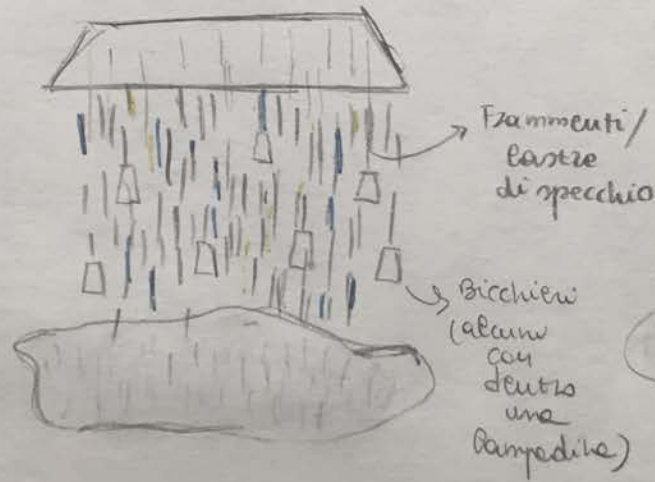 Frammenti/
lastre
di specchio
Bicchieri
(alcuni
con
dentro
una
lampadina)